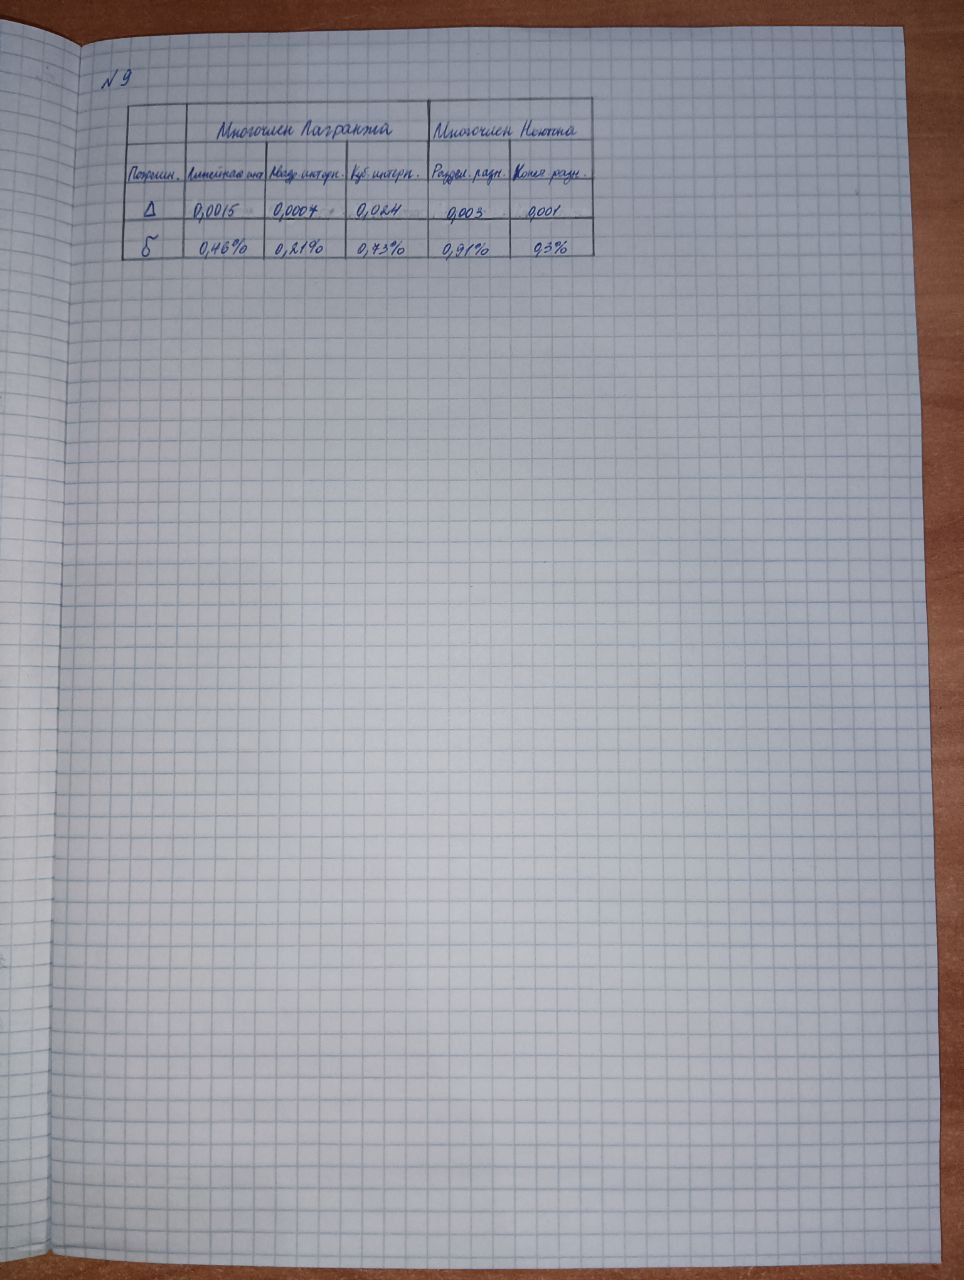 № 9
Многочлен Лагранжа Многочлен Ньютона
Погрешн. Линейная инт Квадр интерп. Куб. интерп. Раздел. разн. Конеч разн.
Δ 0,0015 0,0007 0,024 0,003 0,001
δ 0,46% 0,21% 0,73% 0,91% 0,3%